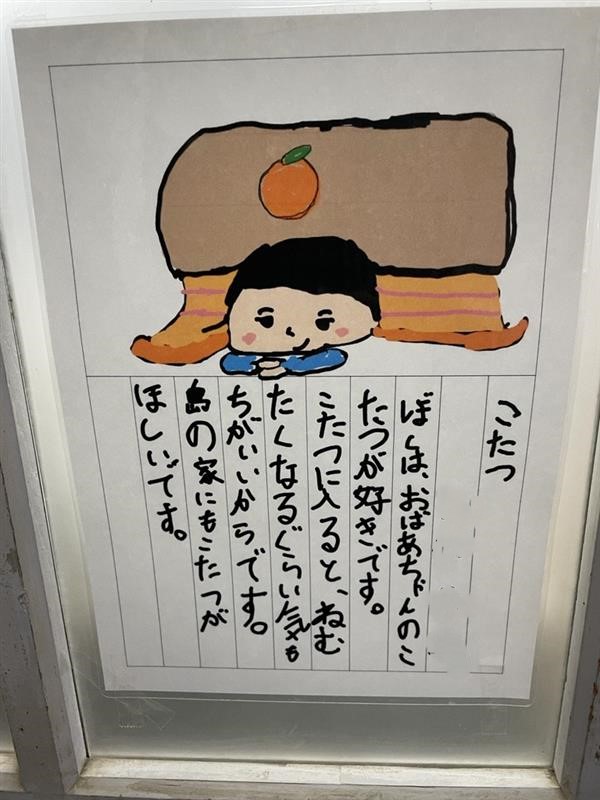 こたつ
ぼくは、おばあちゃんのこ
たつが好きです。
こたつに入ると、ねむ
たくなるぐらい気も
ちがいいからです。
島の家にもこたつが
ほしいです。